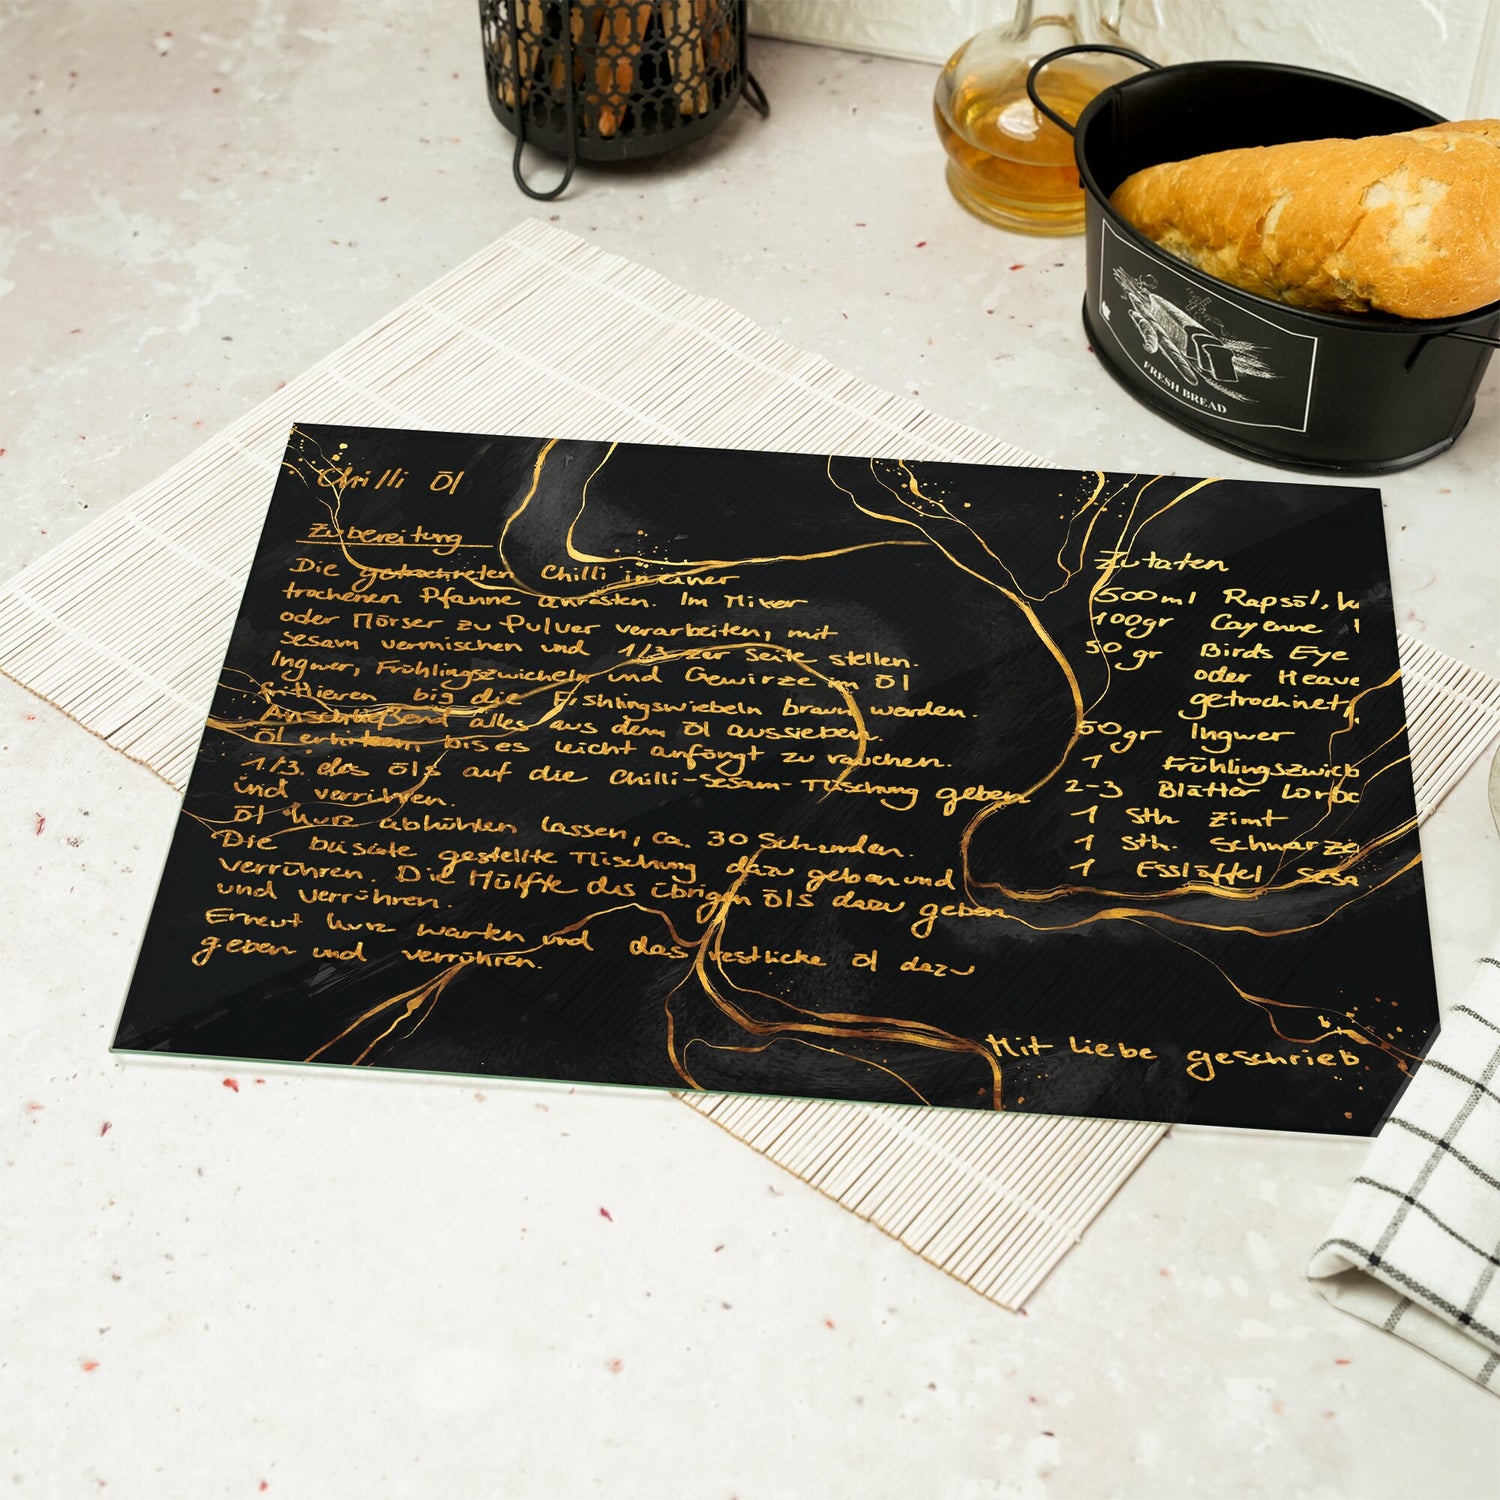 Chilli Öl
Zubereitung
Die getrockneten Chilli in einer
trockenen Pfanne anrösten. Im Mixer
oder Mörser zu Pulver verarbeiten, mit
sesam vermischen und 1/3 zur Seite stellen.
Ingwer, Frühlingszwiebeln und Gewürze im Öl
frittieren bis die Frühlingszwiebeln braun werden.
Anschließend alles aus dem Öl aussieben.
Öl erhitzen bis es leicht anfängt zu rauchen.
1/3. des Öls auf die Chilli-Sesam-Mischung geben
und verrühren.
Öl kurz abkühlen lassen, ca. 30 Sekunden.
Die beiseite gestellte Mischung dazu geben und
verrühren. Die Hälfte des übrigen Öls dazu geben
und verrühren.
Erneut kurz warten und das restliche Öl dazu
geben und verrühren.
Zutaten
500ml Rapsöl,
100gr Cayenne
50 gr Birds Eye
oder Heave
getrocknet,
50gr Ingwer
1 Frühlingszwieb
2-3 Blätter Lorbe
1 Stk Zimt
1 Stk. Schwarze
1 Esslöffel Sesa
Mit liebe geschrieb
FRESH BREAD